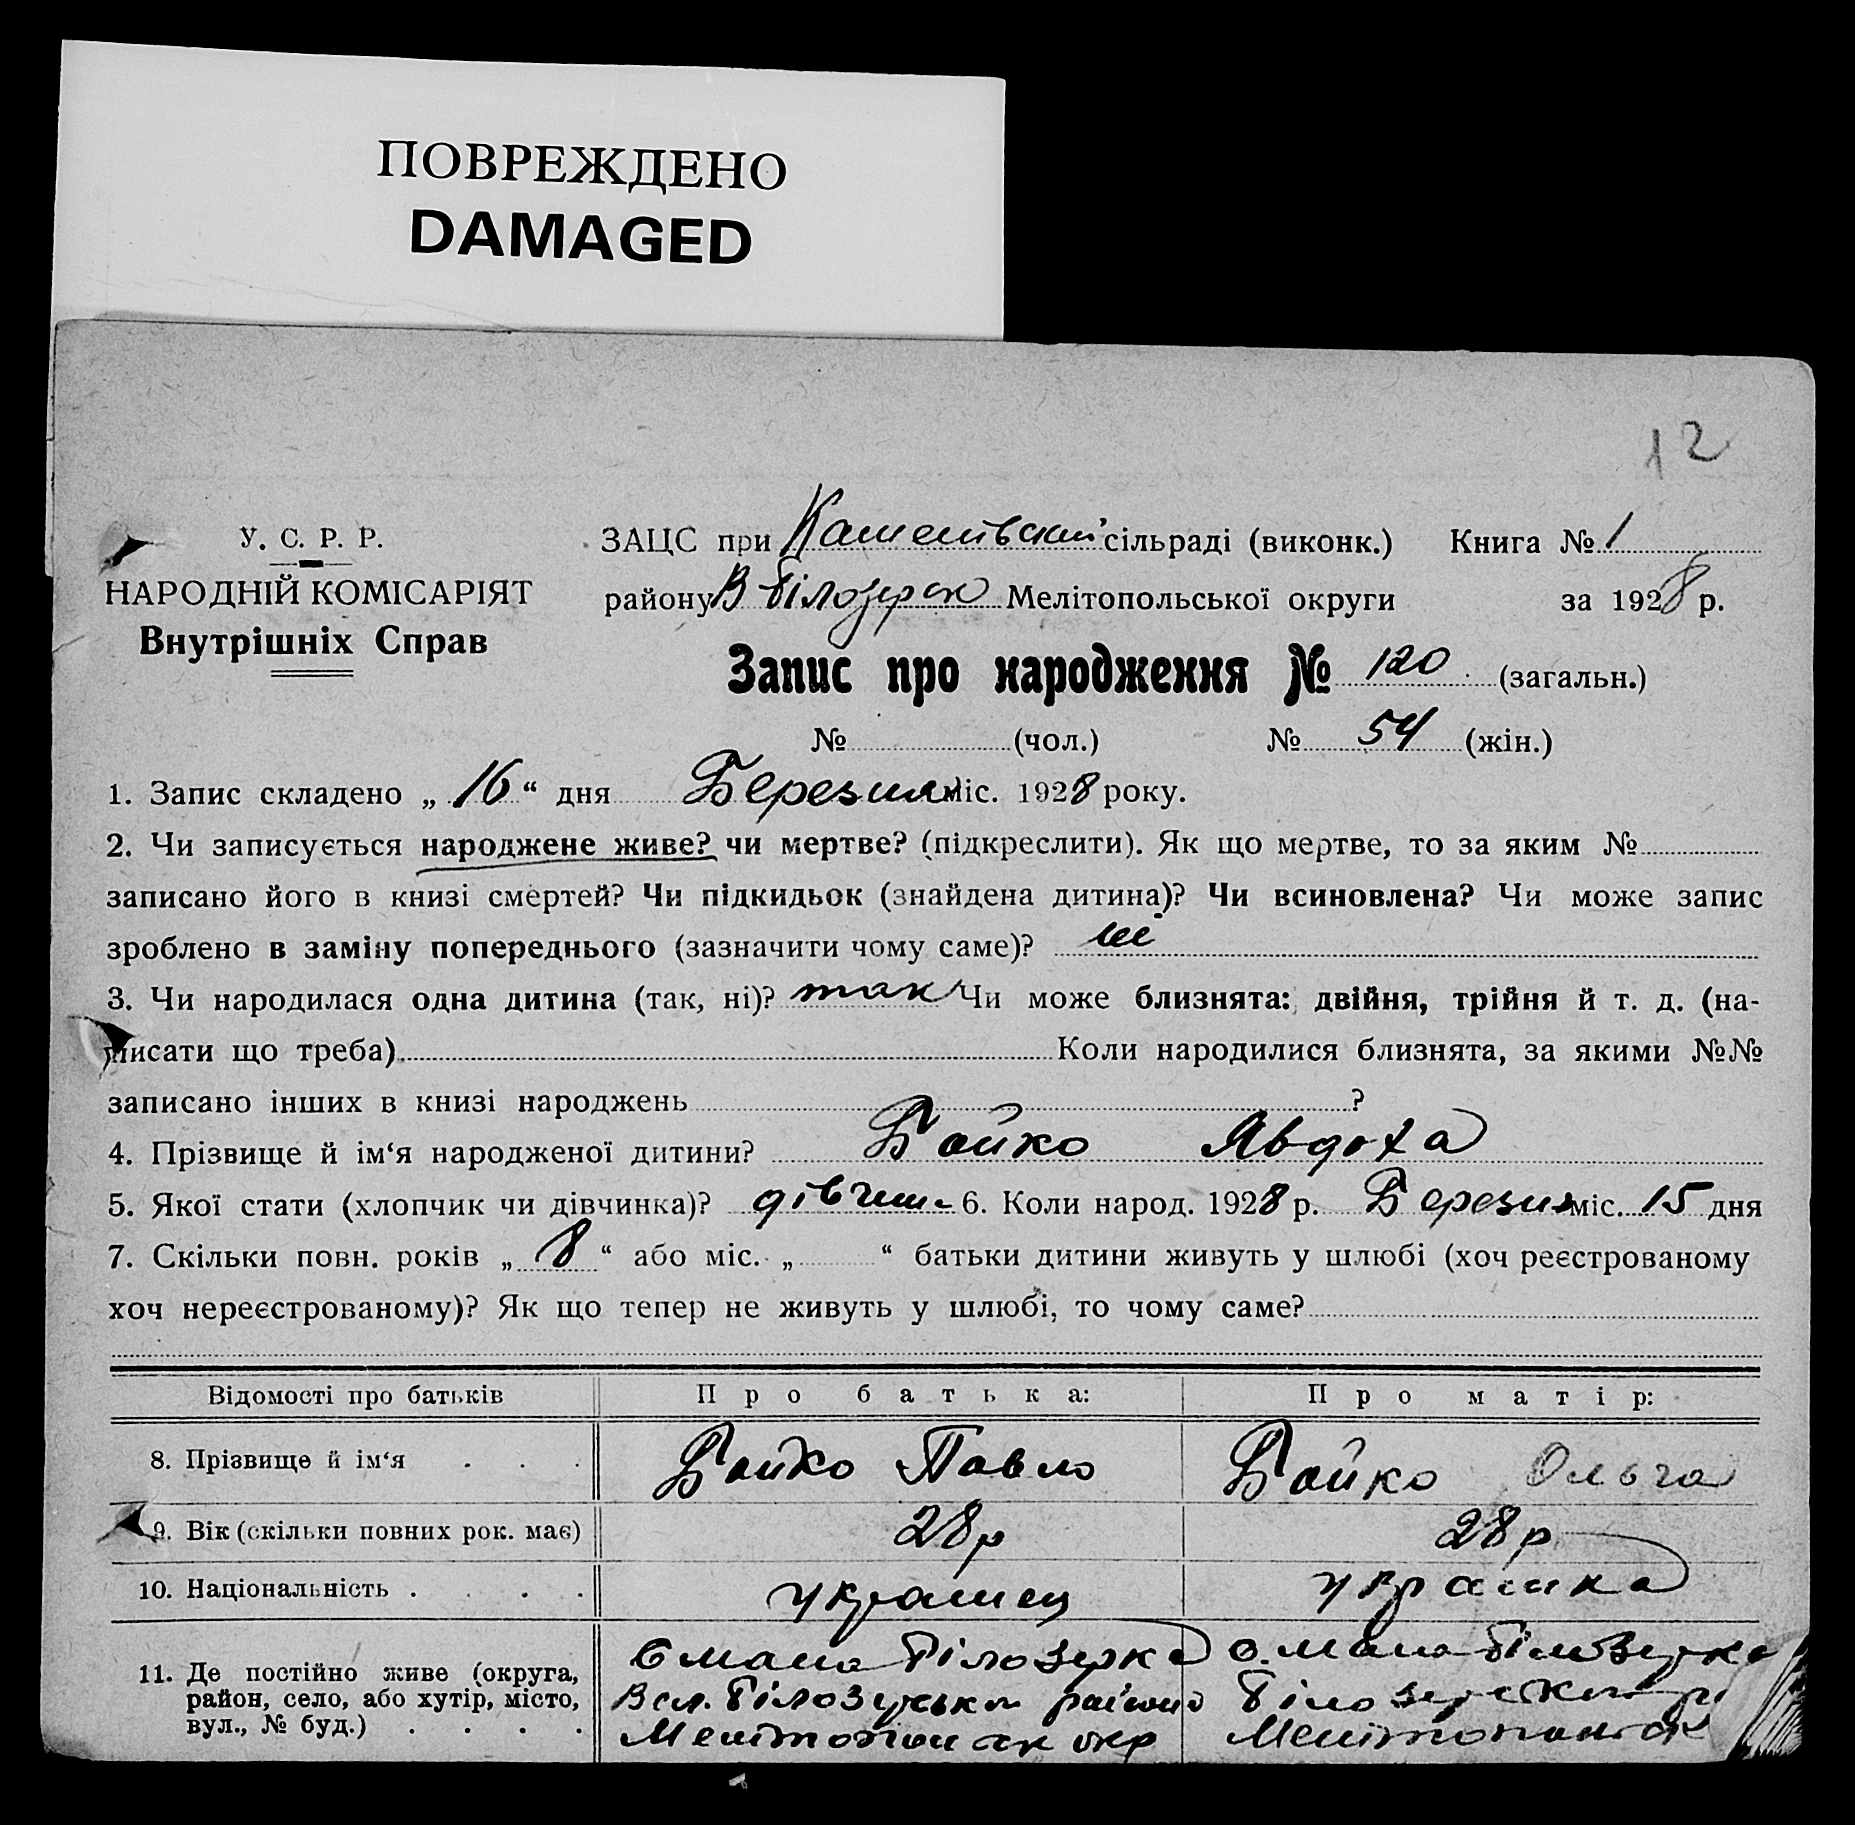 ПОВРЕЖДЕНО
DAMAGED
12
У. С. Р. Р.
НАРОДНІЙ КОМІСАРІЯТ
Внутрішніх Справ
ЗАЦС при сільраді (виконк.) Книга № 1
району В Білозерск Мелітопольської округи за 1928 р.
Запис про народження № 120 (загальн.)
№ (чол.) № 54 (жін.)
1. Запис складено „ 16 “ дня Березня міс. 1928 року.
2. Чи записується народжене живе? чи мертве? (підкреслити). Як що мертве, то за яким №
записано його в книзі смертей? Чи підкидьок (знайдена дитина)? Чи всиновлена? Чи може запис
зроблено в заміну попереднього (зазначити чому саме)? ні
3. Чи народилася одна дитина (так, ні)? так Чи може близнята: двійня, трійня й т. д. (на-
писати що треба) Коли народилися близнята, за якими №№
записано інших в книзі народжень ?
4. Прізвище й ім‘я народженої дитини? Бойко Явдоха
5. Якої стати (хлопчик чи дівчинка)? дівчин. 6. Коли народ. 1928 р. Березня міс. 15 дня
7. Скільки повн. років „ 8 “ або міс. „ “ батьки дитини живуть у шлюбі (хоч реєстрованому
хоч нереєстрованому)? Як що тепер не живуть у шлюбі, то чому саме?
Відомості про батьків Про батька: Про матір:
8. Прізвище й ім‘я . . . Бойко Павло Бойко Ольга
9. Вік (скільки повних рок. має) 28 р 28 р
10. Національність . . . . украинец украинка
11. Де постійно живе (округа,
район, село, або хутір, місто,
вул., № буд.) . . . .
с мала Білозерка
В сл. Білозерськ району
Мелітопол ск окр
с. мала Білозерка
Білозерск